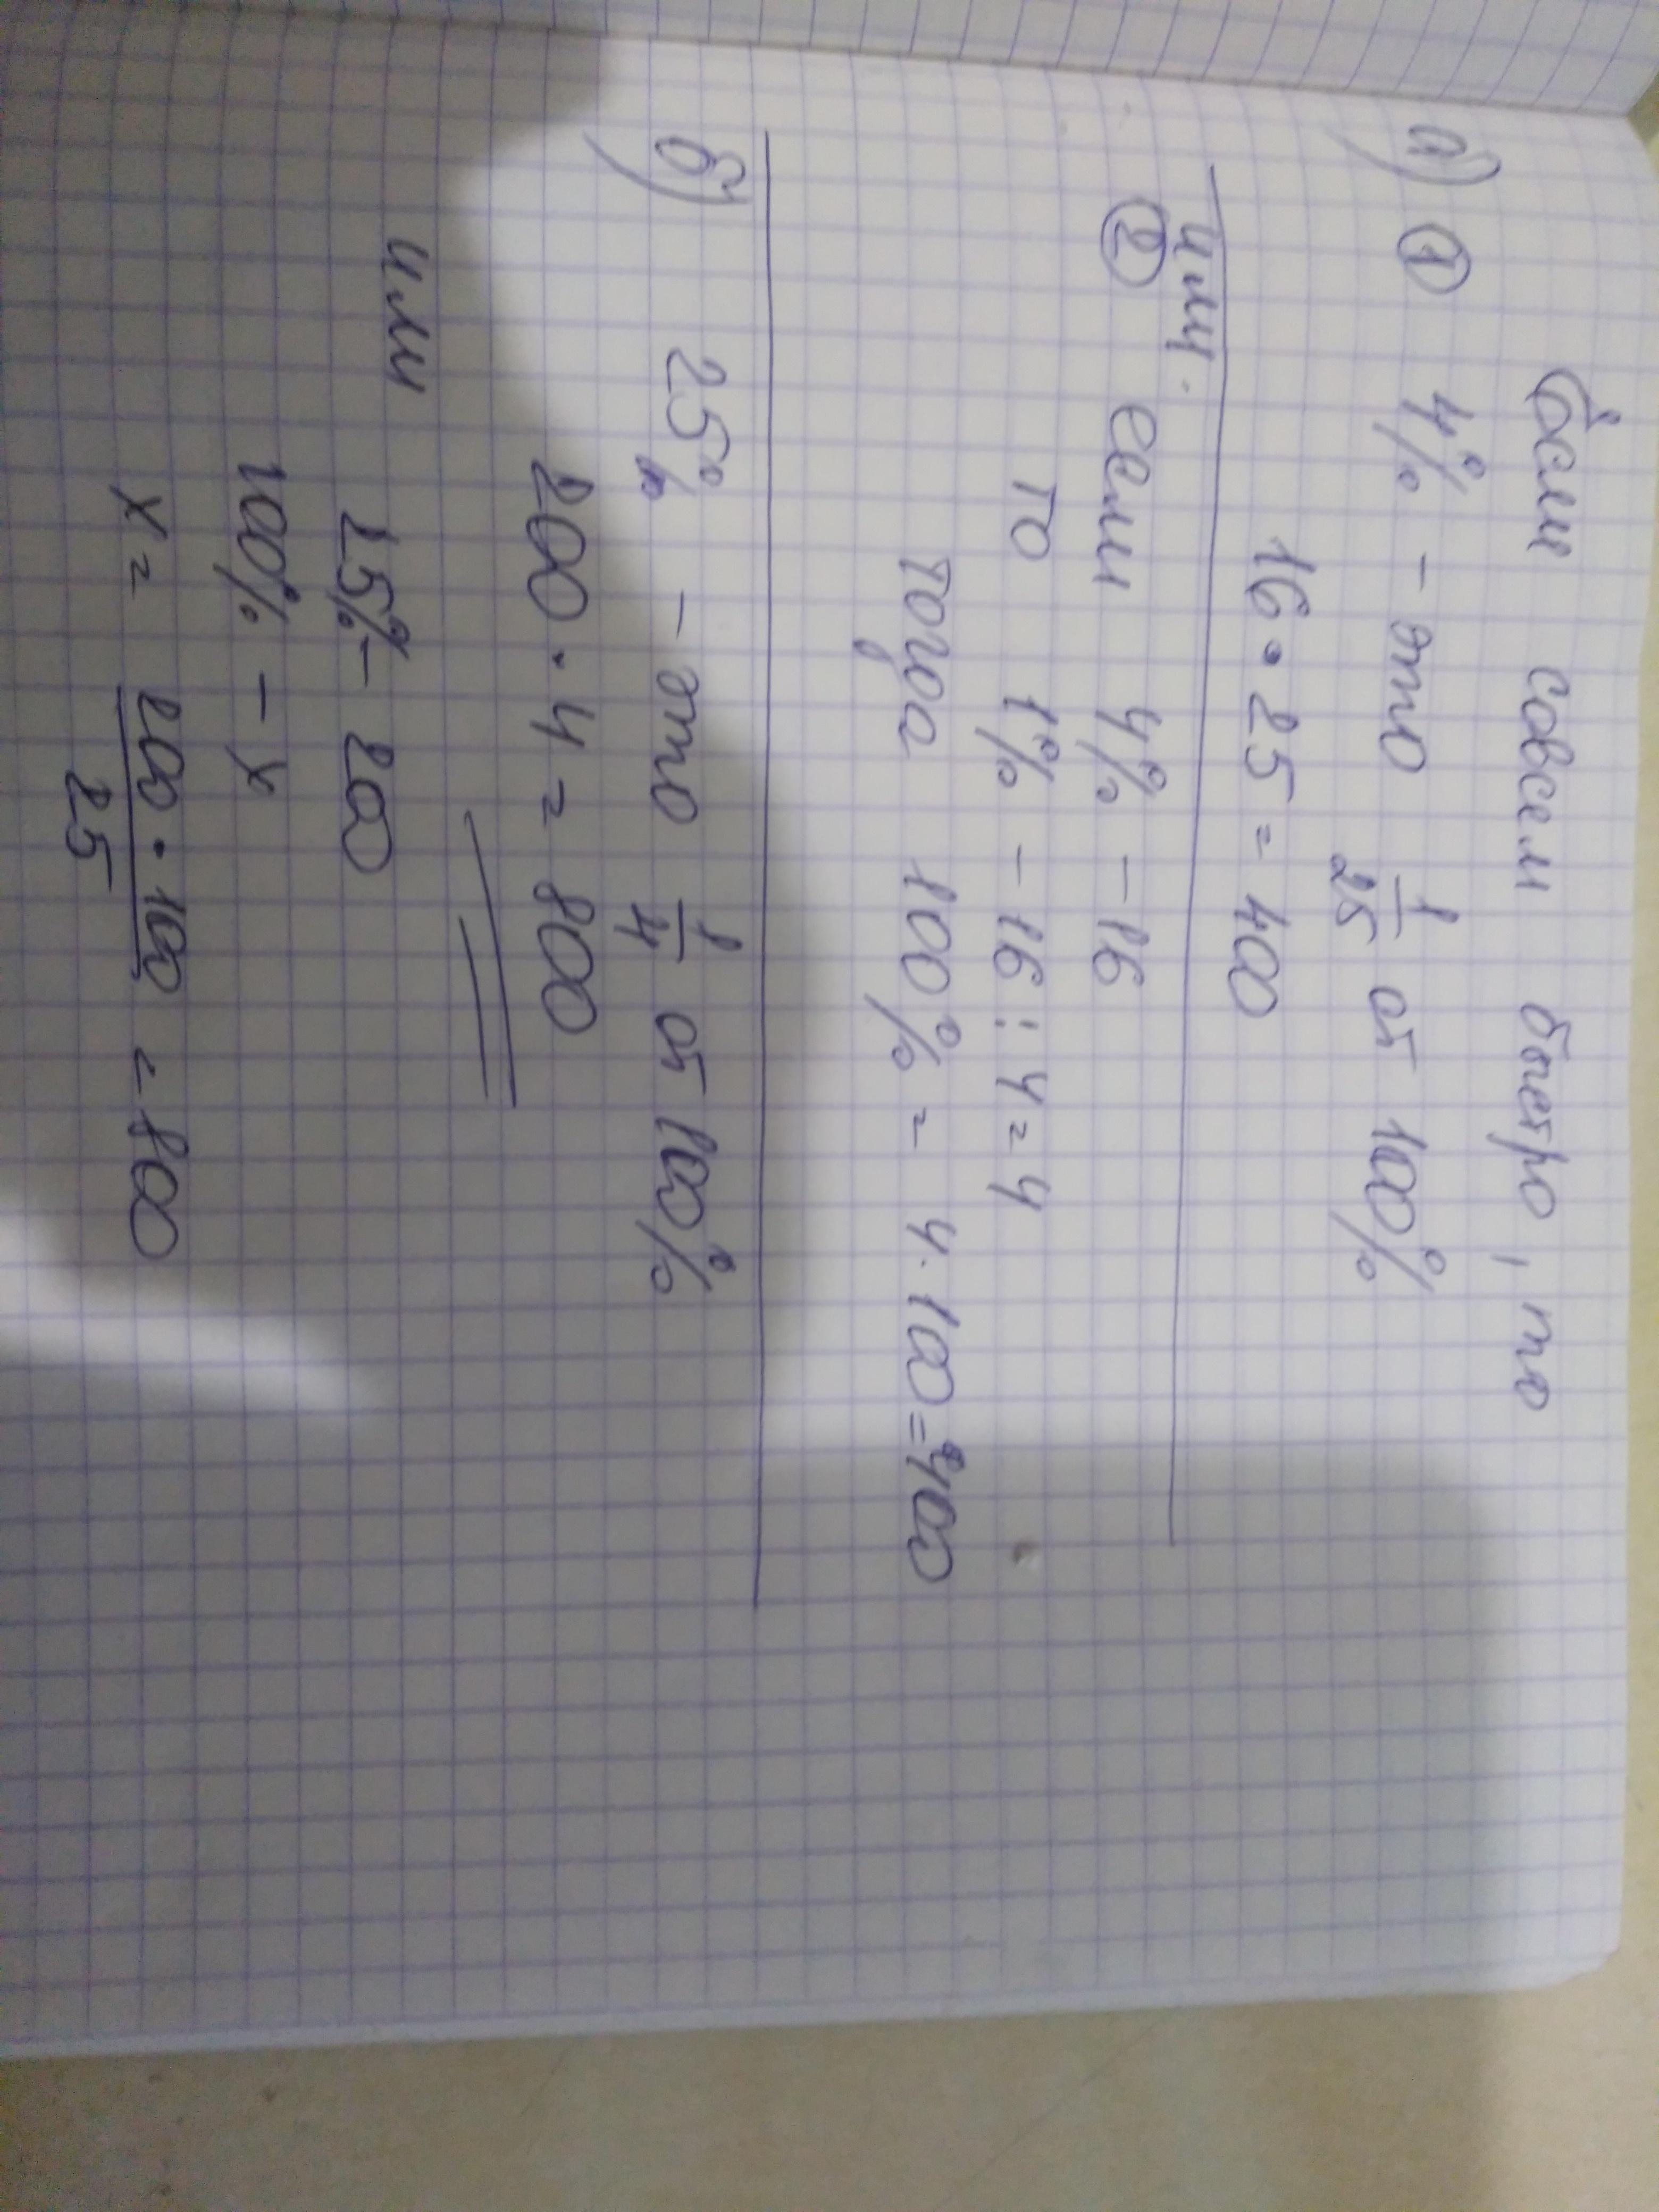 Если совсем быстро, то
а) ① 4% - это 1/25 от 100%
16 • 25 = 400
или.
② если 4% - 16
то 1% - 16 : 4 = 4
тогда 100% = 4 · 100 = 400
б) 25% - это 1/4 от 100%
200 · 4 = 800
или
25% - 200
100% - x
x = 200 · 100 / 25 = 800